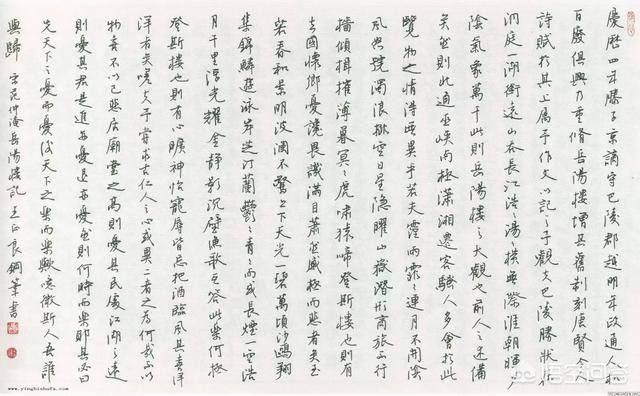 慶曆四年滕子京謫守巴陵郡越明年政通人和
百廢俱興乃重修岳陽樓增其舊制刻唐賢今人
詩賦於其上屬予作文以記之予觀夫巴陵勝狀在
洞庭一湖銜遠山吞長江浩浩湯湯橫無際涯朝暉夕
陰氣象萬千此則岳陽樓之大觀也前人之述備
矣然則北通巫峽南極瀟湘遷客騷人多會於此
覽物之情得無異乎若夫霪雨霏霏連月不開陰
風怒號濁浪排空日星隱曜山嶽潛形商旅不行
檣傾楫摧薄暮冥冥虎嘯猿啼登斯樓也則有
去國懷鄉憂讒畏譏滿目蕭然感極而悲者矣至
若春和景明波瀾不驚上下天光一碧萬頃沙鷗翔
集錦鱗遊泳岸芷汀蘭鬱鬱青青而或長煙一空浩
月千里浮光耀金靜影沉璧漁歌互答此樂何極
登斯樓也則有心曠神怡寵辱皆忘把酒臨風其喜洋
洋者矣嗟夫予嘗求古仁人之心或異二者之為何哉不以
物喜不以己悲居廟堂之高則憂其民處江湖之遠
則憂其君是進亦憂退亦憂然則何時而樂耶其必曰
先天下之憂而憂後天下之樂而樂歟噫微斯人吾誰
與歸 宋范仲淹岳陽樓記 王正良鋼筆書
www.yingbishufa.com
悟空问答